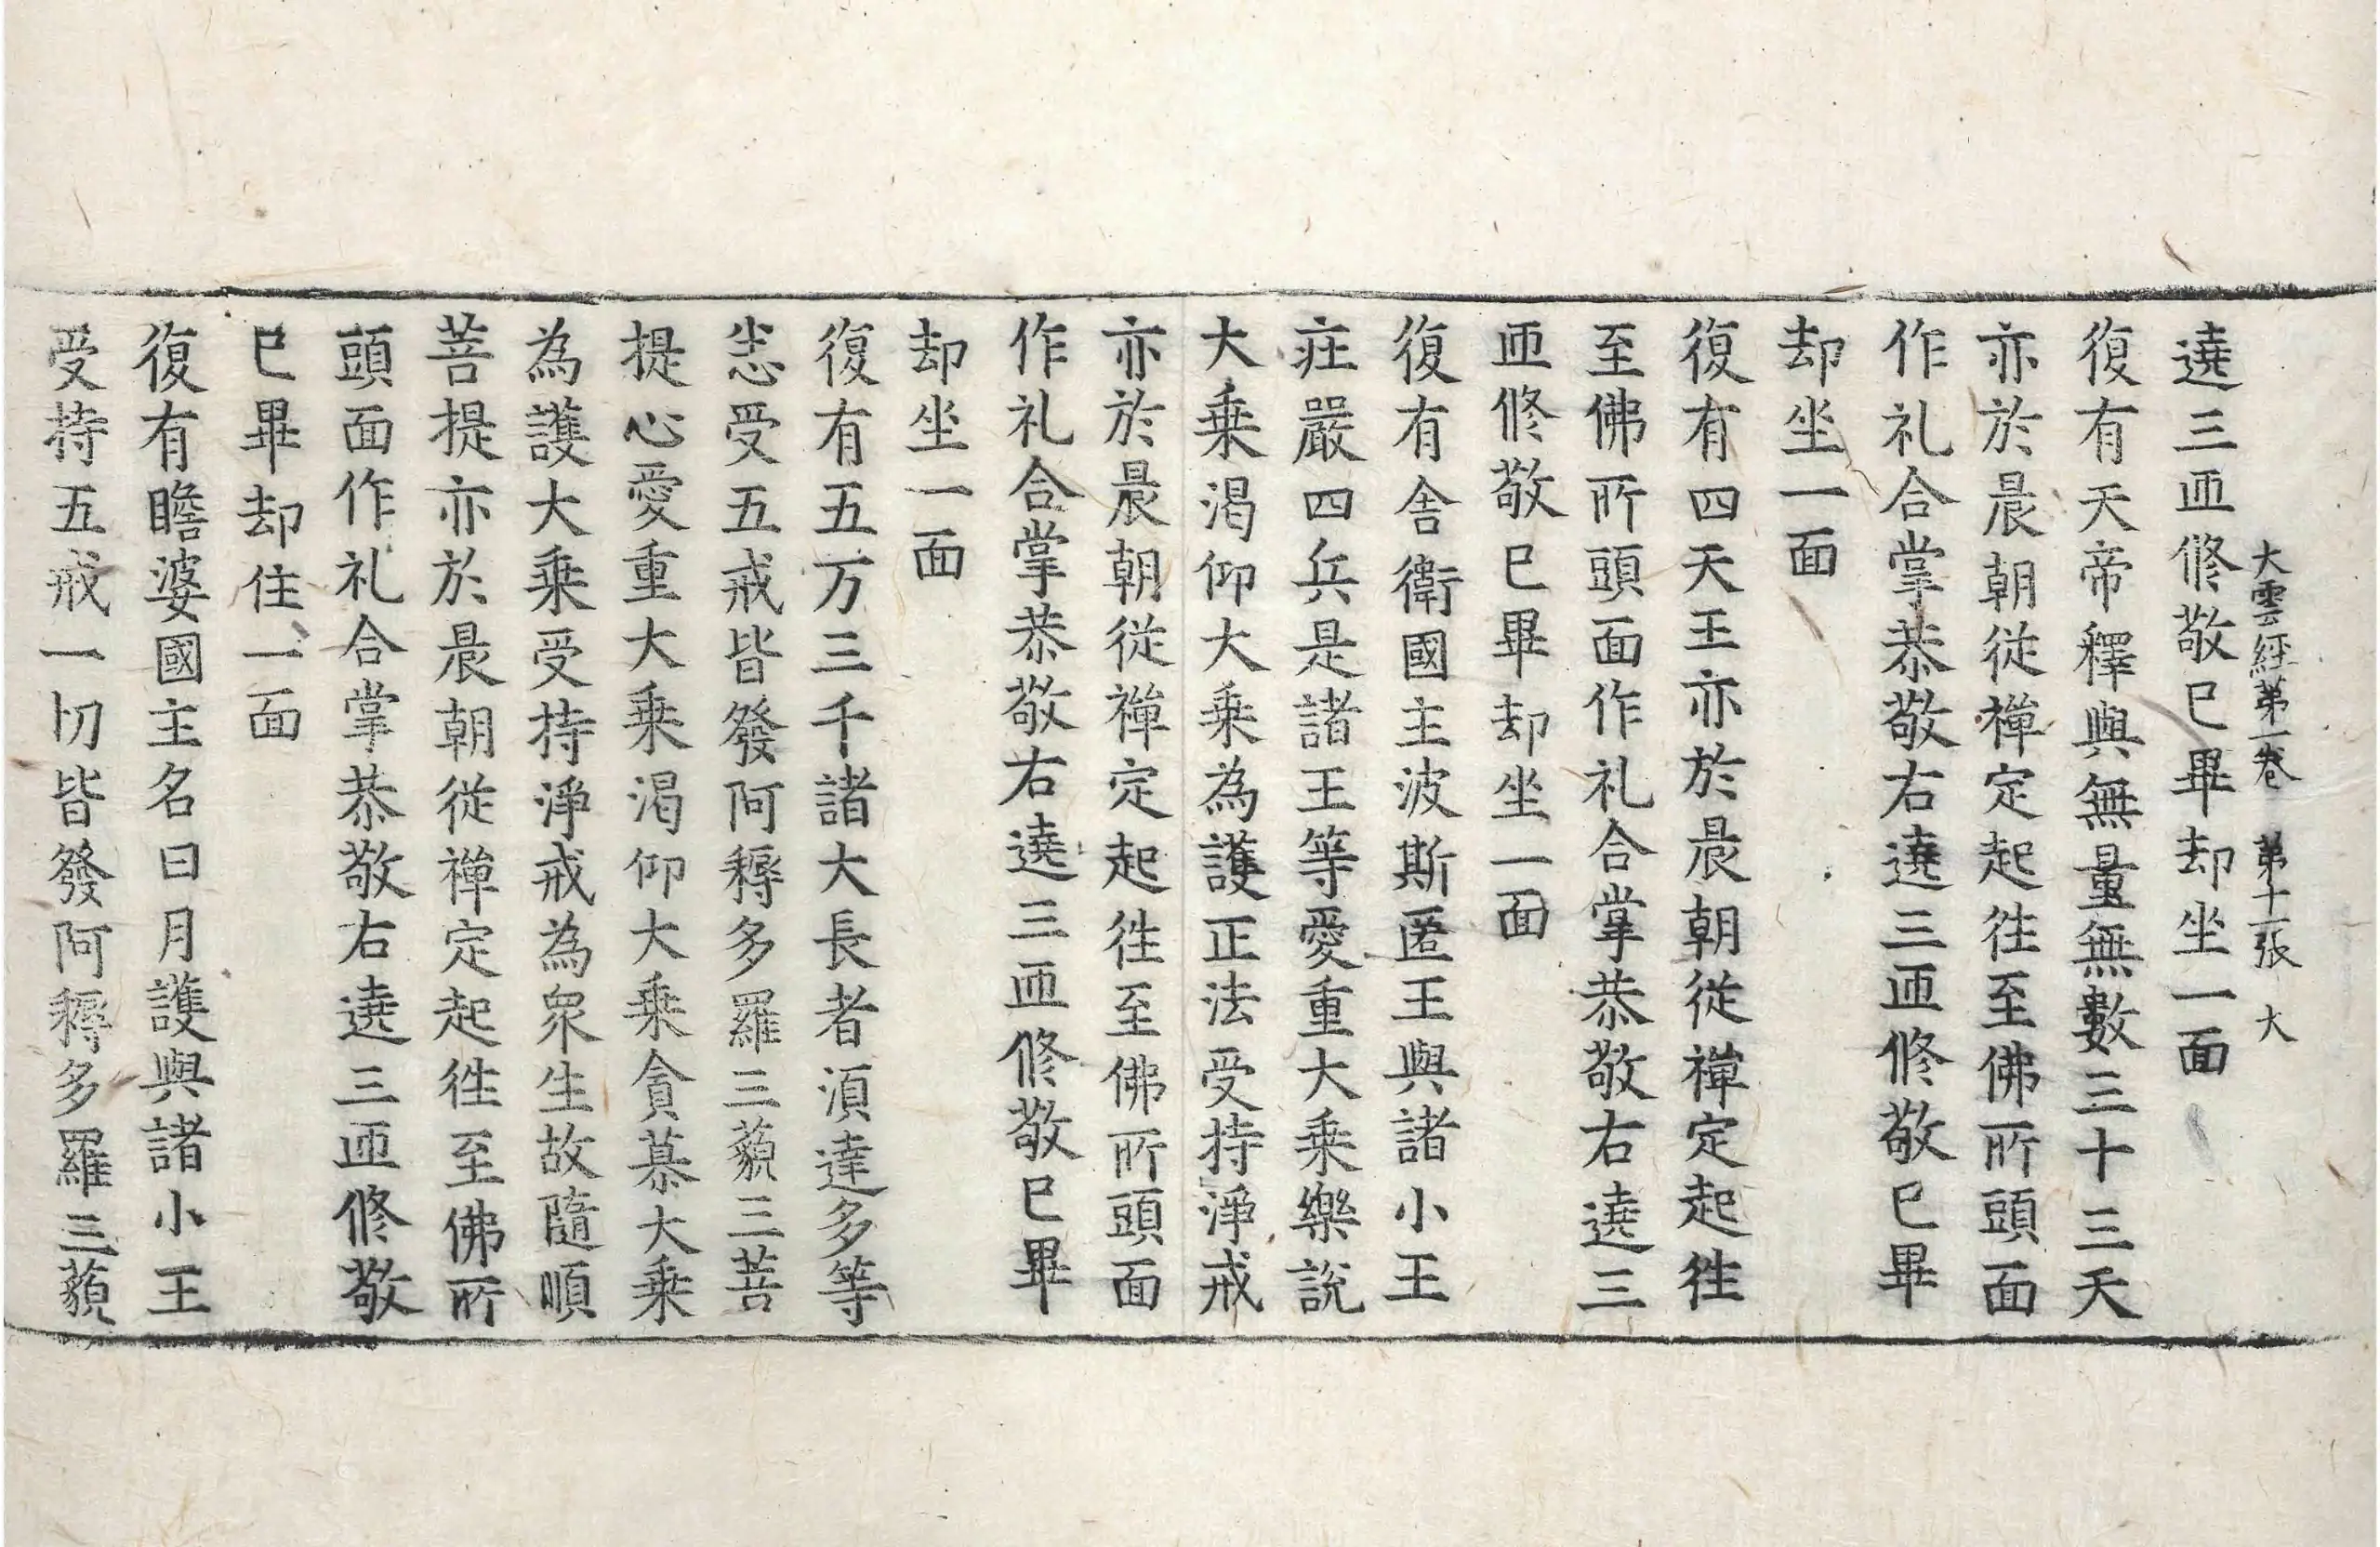 大雲經第一卷 第十一張 大
遶三匝修敬已畢却坐一面
復有天帝釋與無量無數三十三天
亦於晨朝従禪定起徃至佛所頭面
作礼合掌恭敬右遶三匝修敬已畢
却坐一面
復有四天王亦於晨朝従禪定起徃
至佛所頭面作礼合掌恭敬右遶三
匝修敬已畢却坐一面
復有舎衛國主波斯匿王與諸小王
莊嚴四兵是諸王等愛重大乗樂說
大乗渇仰大乗為護正法受持淨戒
亦於晨朝従禪定起徃至佛所頭面
作礼合掌恭敬右遶三匝修敬已畢
却坐一面
復有五万三千諸大長者湏達多等
悉受五戒皆發阿耨多羅三藐三菩
提心愛重大乗渇仰大乗貪慕大乗
為護大乗受持淨戒為衆生故隨順
菩提亦於晨朝従禪定起徃至佛所
頭面作礼合掌恭敬右遶三匝修敬
已畢却住一面
復有瞻婆國主名曰月護與諸小王
受持五戒一切皆發阿耨多羅三藐